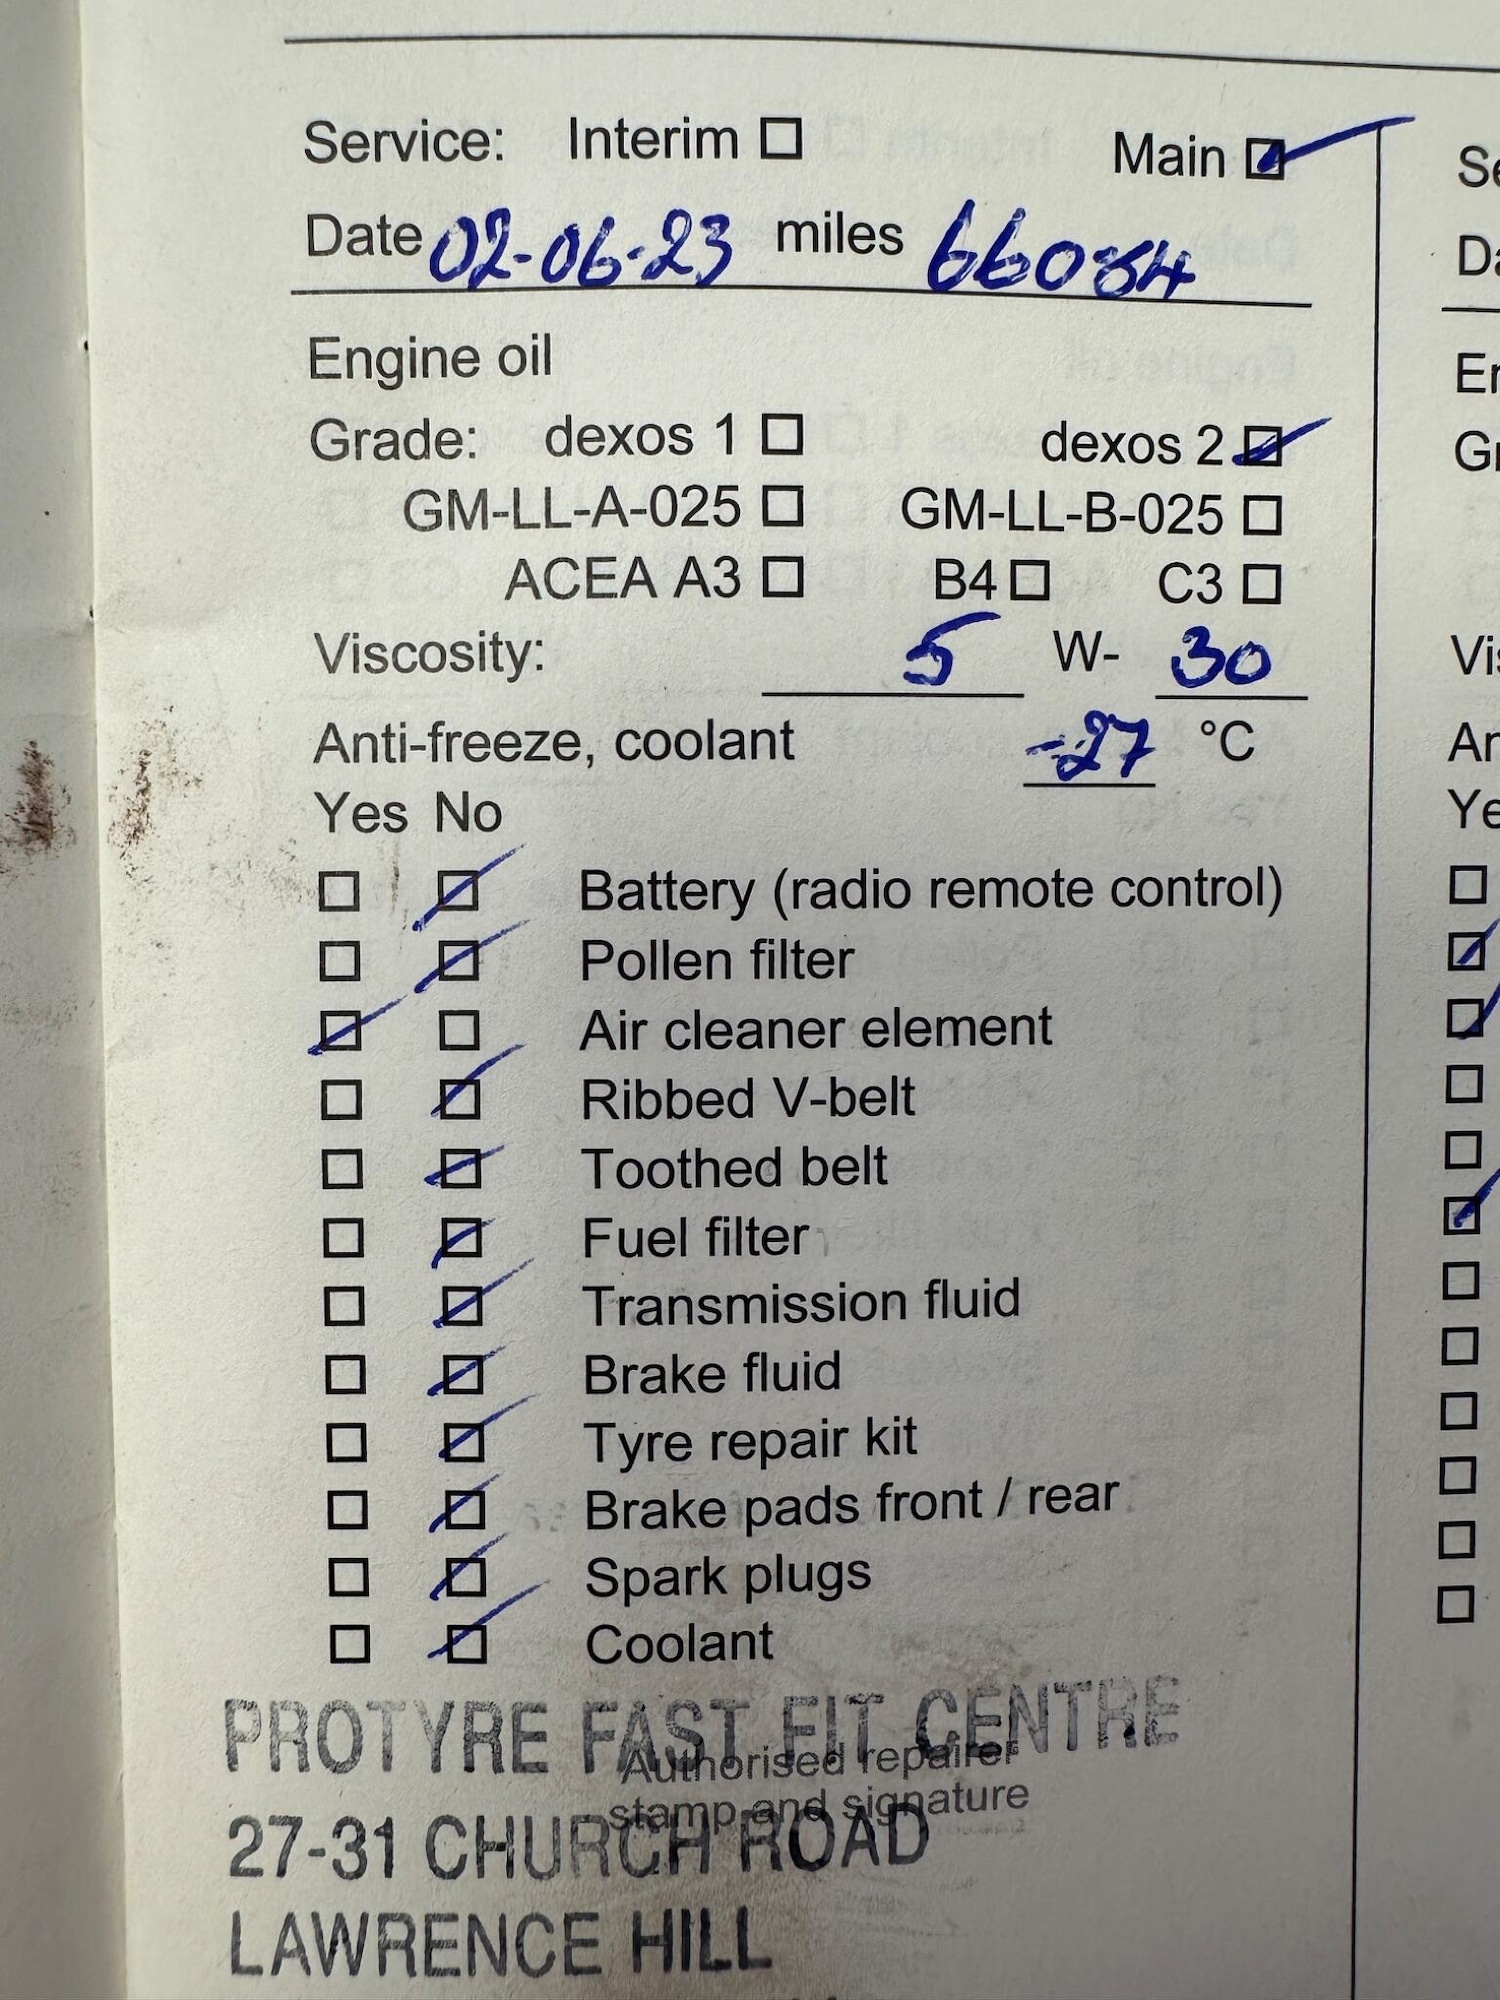 Service: Interim ☐ Main ☑
Date 02-06-23 miles 66084
Engine oil
Grade: dexos 1 ☐ dexos 2 ☑
GM-LL-A-025 ☐ GM-LL-B-025 ☐
ACEA A3 ☐ B4 ☐ C3 ☐
Viscosity: 5 W- 30
Anti-freeze, coolant -27 °C
Yes No
☐ ☑ Battery (radio remote control)
☐ ☑ Pollen filter
☑ ☐ Air cleaner element
☐ ☑ Ribbed V-belt
☐ ☑ Toothed belt
☐ ☑ Fuel filter
☐ ☑ Transmission fluid
☐ ☑ Brake fluid
☐ ☑ Tyre repair kit
☐ ☑ Brake pads front / rear
☐ ☑ Spark plugs
☐ ☑ Coolant
PROTYRE FAST FIT CENTRE
Authorised repairer
stamp and signature
27-31 CHURCH ROAD
LAWRENCE HILL